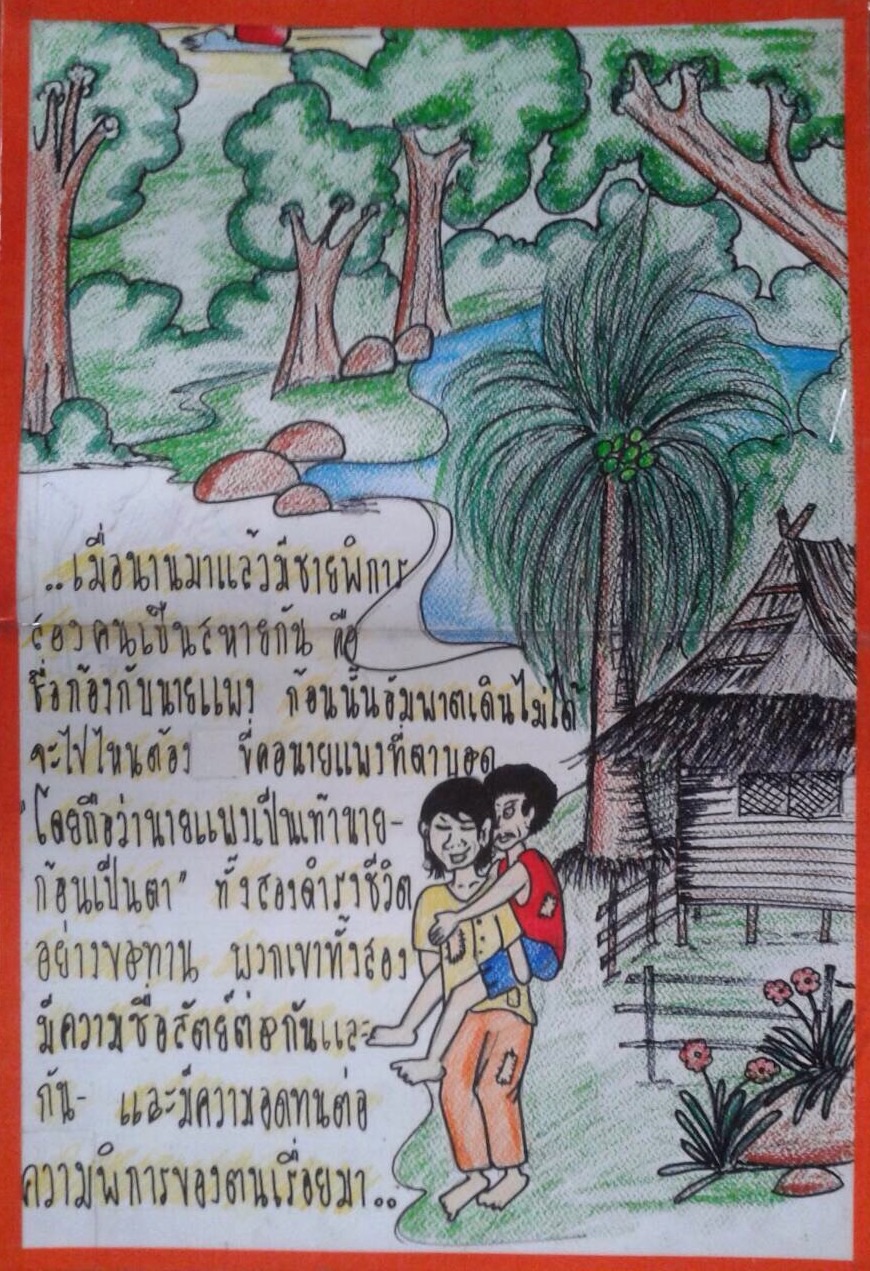 ..เมื่อนานมาแล้วมีชายพิการ
สองคนเป็นสหายกัน คือ
ชื่อก้อนกับนายแพง ก้อนนั้นอัมพาตเดินไม่ได้
จะไปไหนต้อง ขี่คอนายแพงที่ตาบอด
"โดยถือว่านายแพงเป็นเท้านาย-
ก้อนเป็นตา" ทั้งสองดำรงชีวิต
อย่างขอทาน พวกเขาทั้งสอง
มีความซื่อสัตย์ต่อกันและ
กัน- และมีความอดทนต่อ
ความพิการของตนเรื่อยมา..